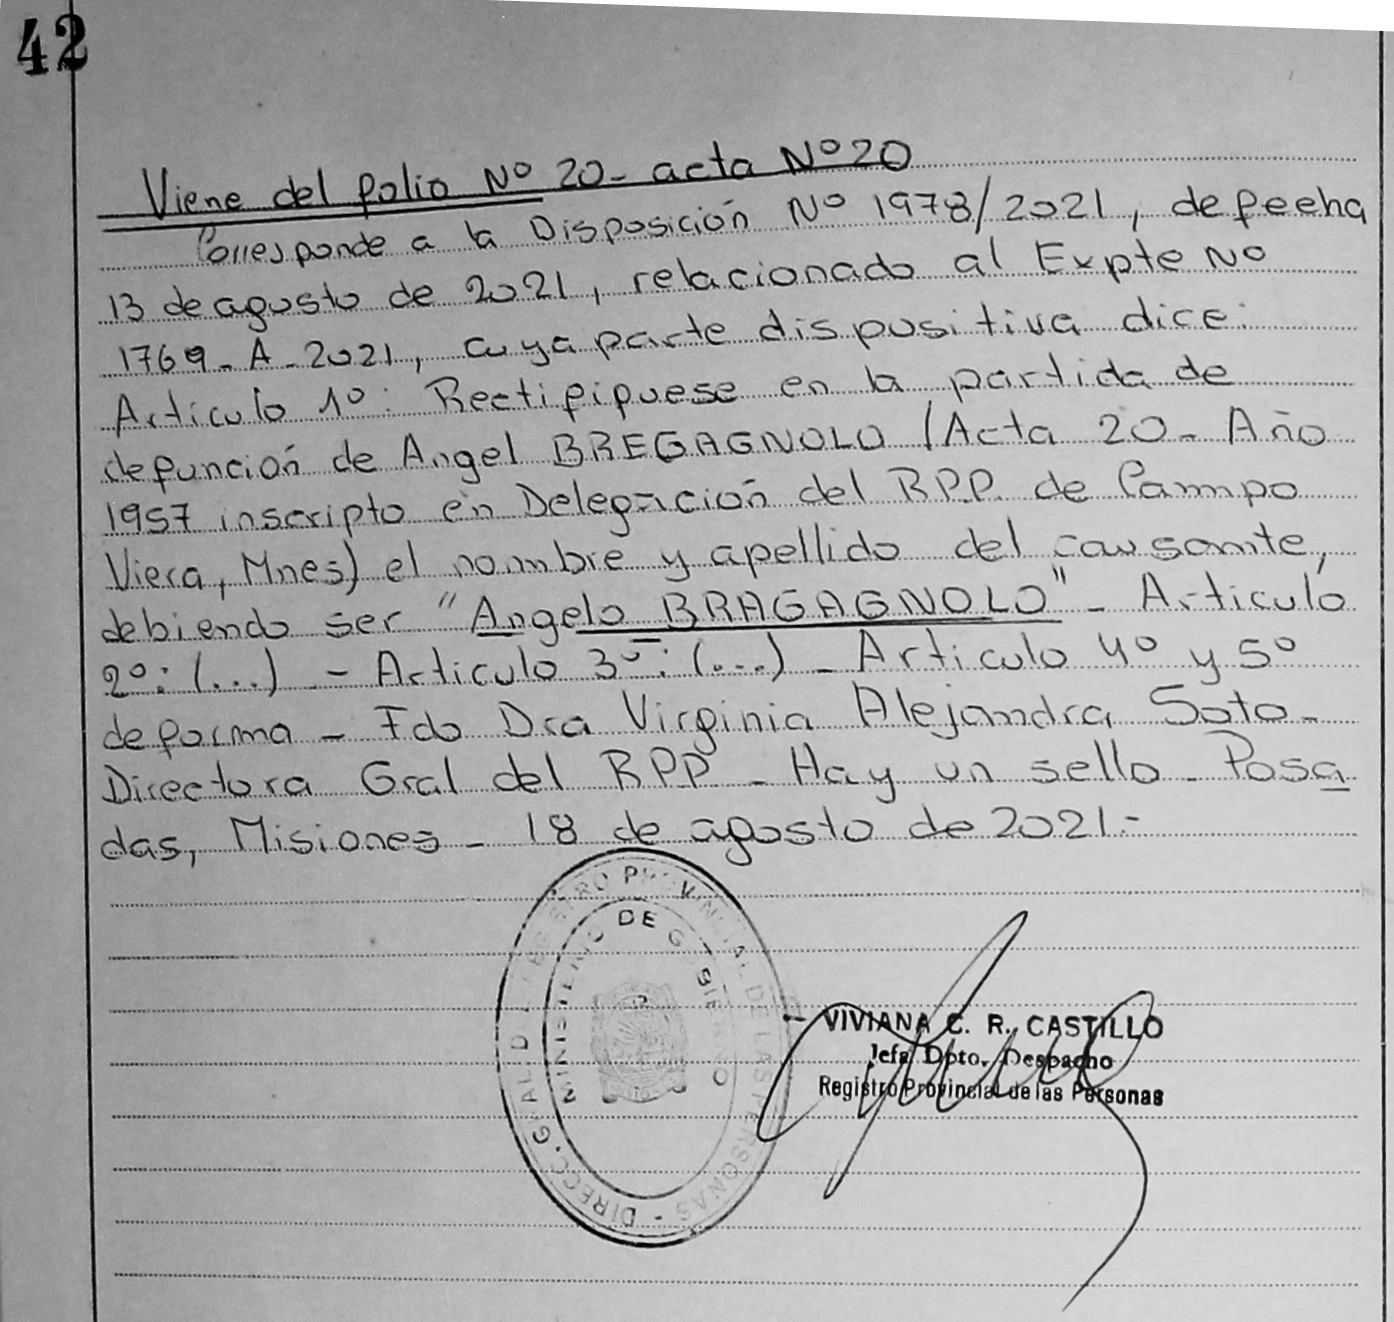 42
Viene del folio Nº 20- acta Nº20
Corresponde a la Disposición Nº 1978/2021, de fecha
13 de agosto de 2021, relacionado al Expte No
1769-A-2021, cuya parte dispositiva dice:
Artículo 1º: Rectifíquese en la partida de
defunción de Angel BREGAGNOLO (Acta 20- Año
1957 inscripto en Delegación del RPP. de Campo
Viera, Mnes) el nombre y apellido del causante,
debiendo ser "Angelo BRAGAGNOLO"- Artículo
2º: (...) - Articulo 3º: (...) - Articulo 4º y 5º
de forma - Fdo Dra Virginia Alejandra Soto-
Directora Gral del RPP - Hay un sello - Posa
das, Misiones - 18 de agosto de 2021.-
DIRECC. GRAL D REGISTRO PROVINCIAL DE LAS PERSONAS -
MINISTERIO DE GOBIERNO
VIVIANA C. R. CASTILLO
Jefa Dpto. Despacho
Registro Provincial de las Personas